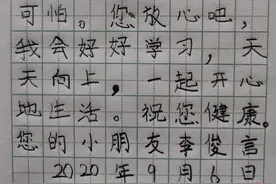 可怕。您放心吧，
我会好好学习，天
天向上，一起开心
地生活。祝您健康。
您的小朋友李俊言
2020年9月6日